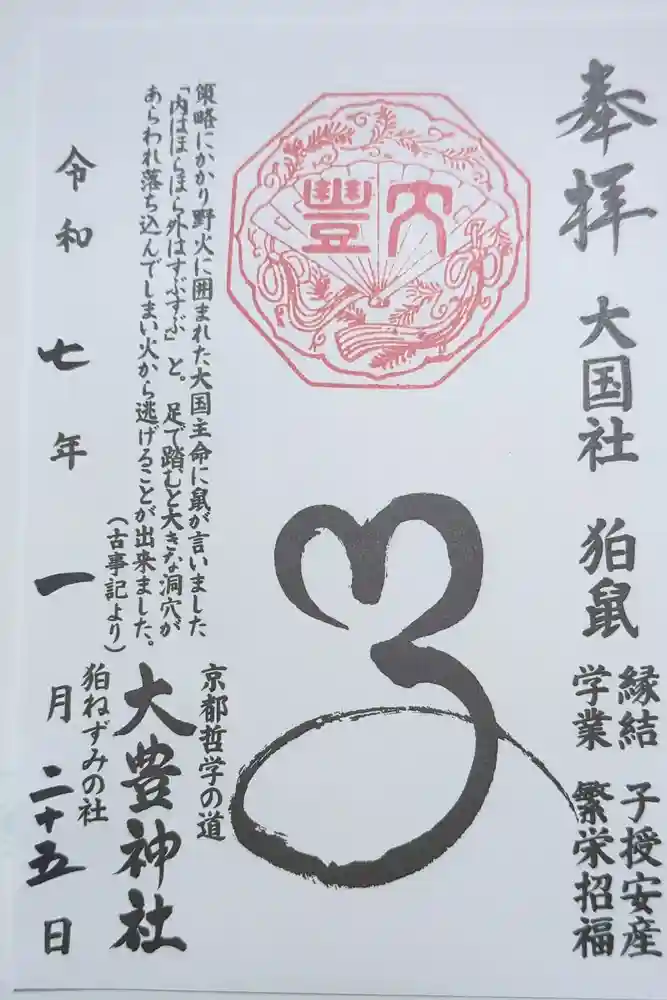 奉拝
大国社
狛鼠
縁結
学業
子授安産
繁栄招福
大豐
策略にかかり野火に囲まれた大国主命に鼠が言いました
「内はほらほら外はすぶすぶ」と。足で踏むと大きな洞穴が
あらわれ落ち込んでしまい火から逃げることが出来ました。
（古事記より）
京都哲学の道
大豊神社
狛ねずみの社
令和七年一月二十五日